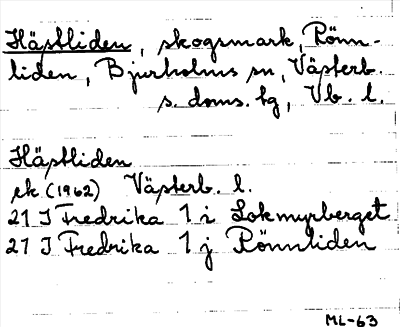 Hästliden, skogsmark, Rönn-
liden, Bjurholms sn, Västerb.
s. doms. hg, Vb. l.
Hästliden
ek (1962) Västerb. l.
21 J Fredrika 1 i Lokmyrberget
21 J Fredrika 1 j Rönnliden
ML-63